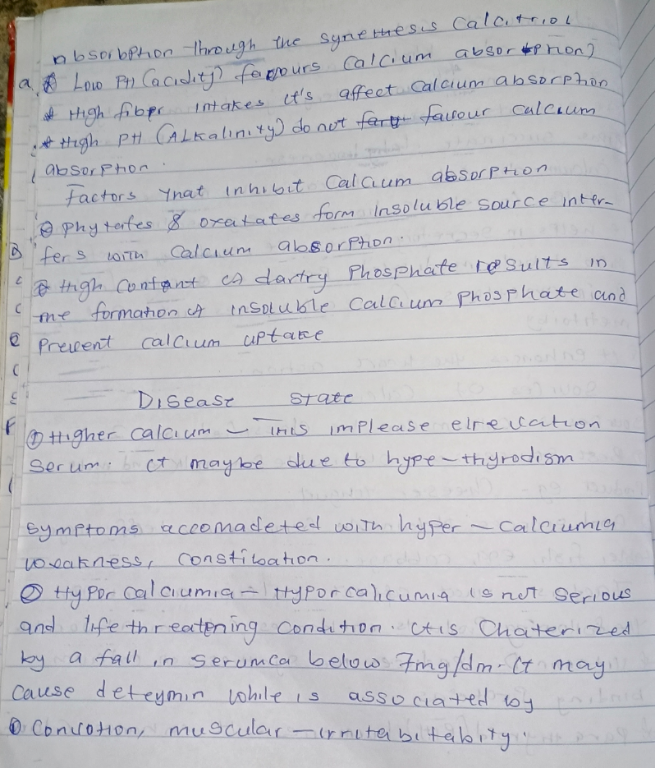 absorbphon through the synethesis Calcitriol
a * Low PH (acidity) favours Calcium absorption)
* High fiber intakes it's affect Calcium absorption
* High PH (ALKalinity) do not favour calcium
absorption.
Factors that inhibit Calcium absorption
① phytates & oxatates form insoluble source inter-
fers with Calcium absorption.
② High Content of dartry Phosphate results in
the formation of insoluble Calcium phosphate and
Prevent calcium uptake
Disease state
① Higher calcium - This implease elrevation
Serum. it maybe due to hype-thyrodism
Symptoms accomadeted with hyper-Calciumia
weakness, constibation.
② Hypor calciumia - Hyporcalicumia is not Serious
and lifethreatening condition. it is Chaterized
by a fall in serumca below 7mg/dm. it may
cause deteymin while is associated by
① Convotion, muscular-irritabitabity.